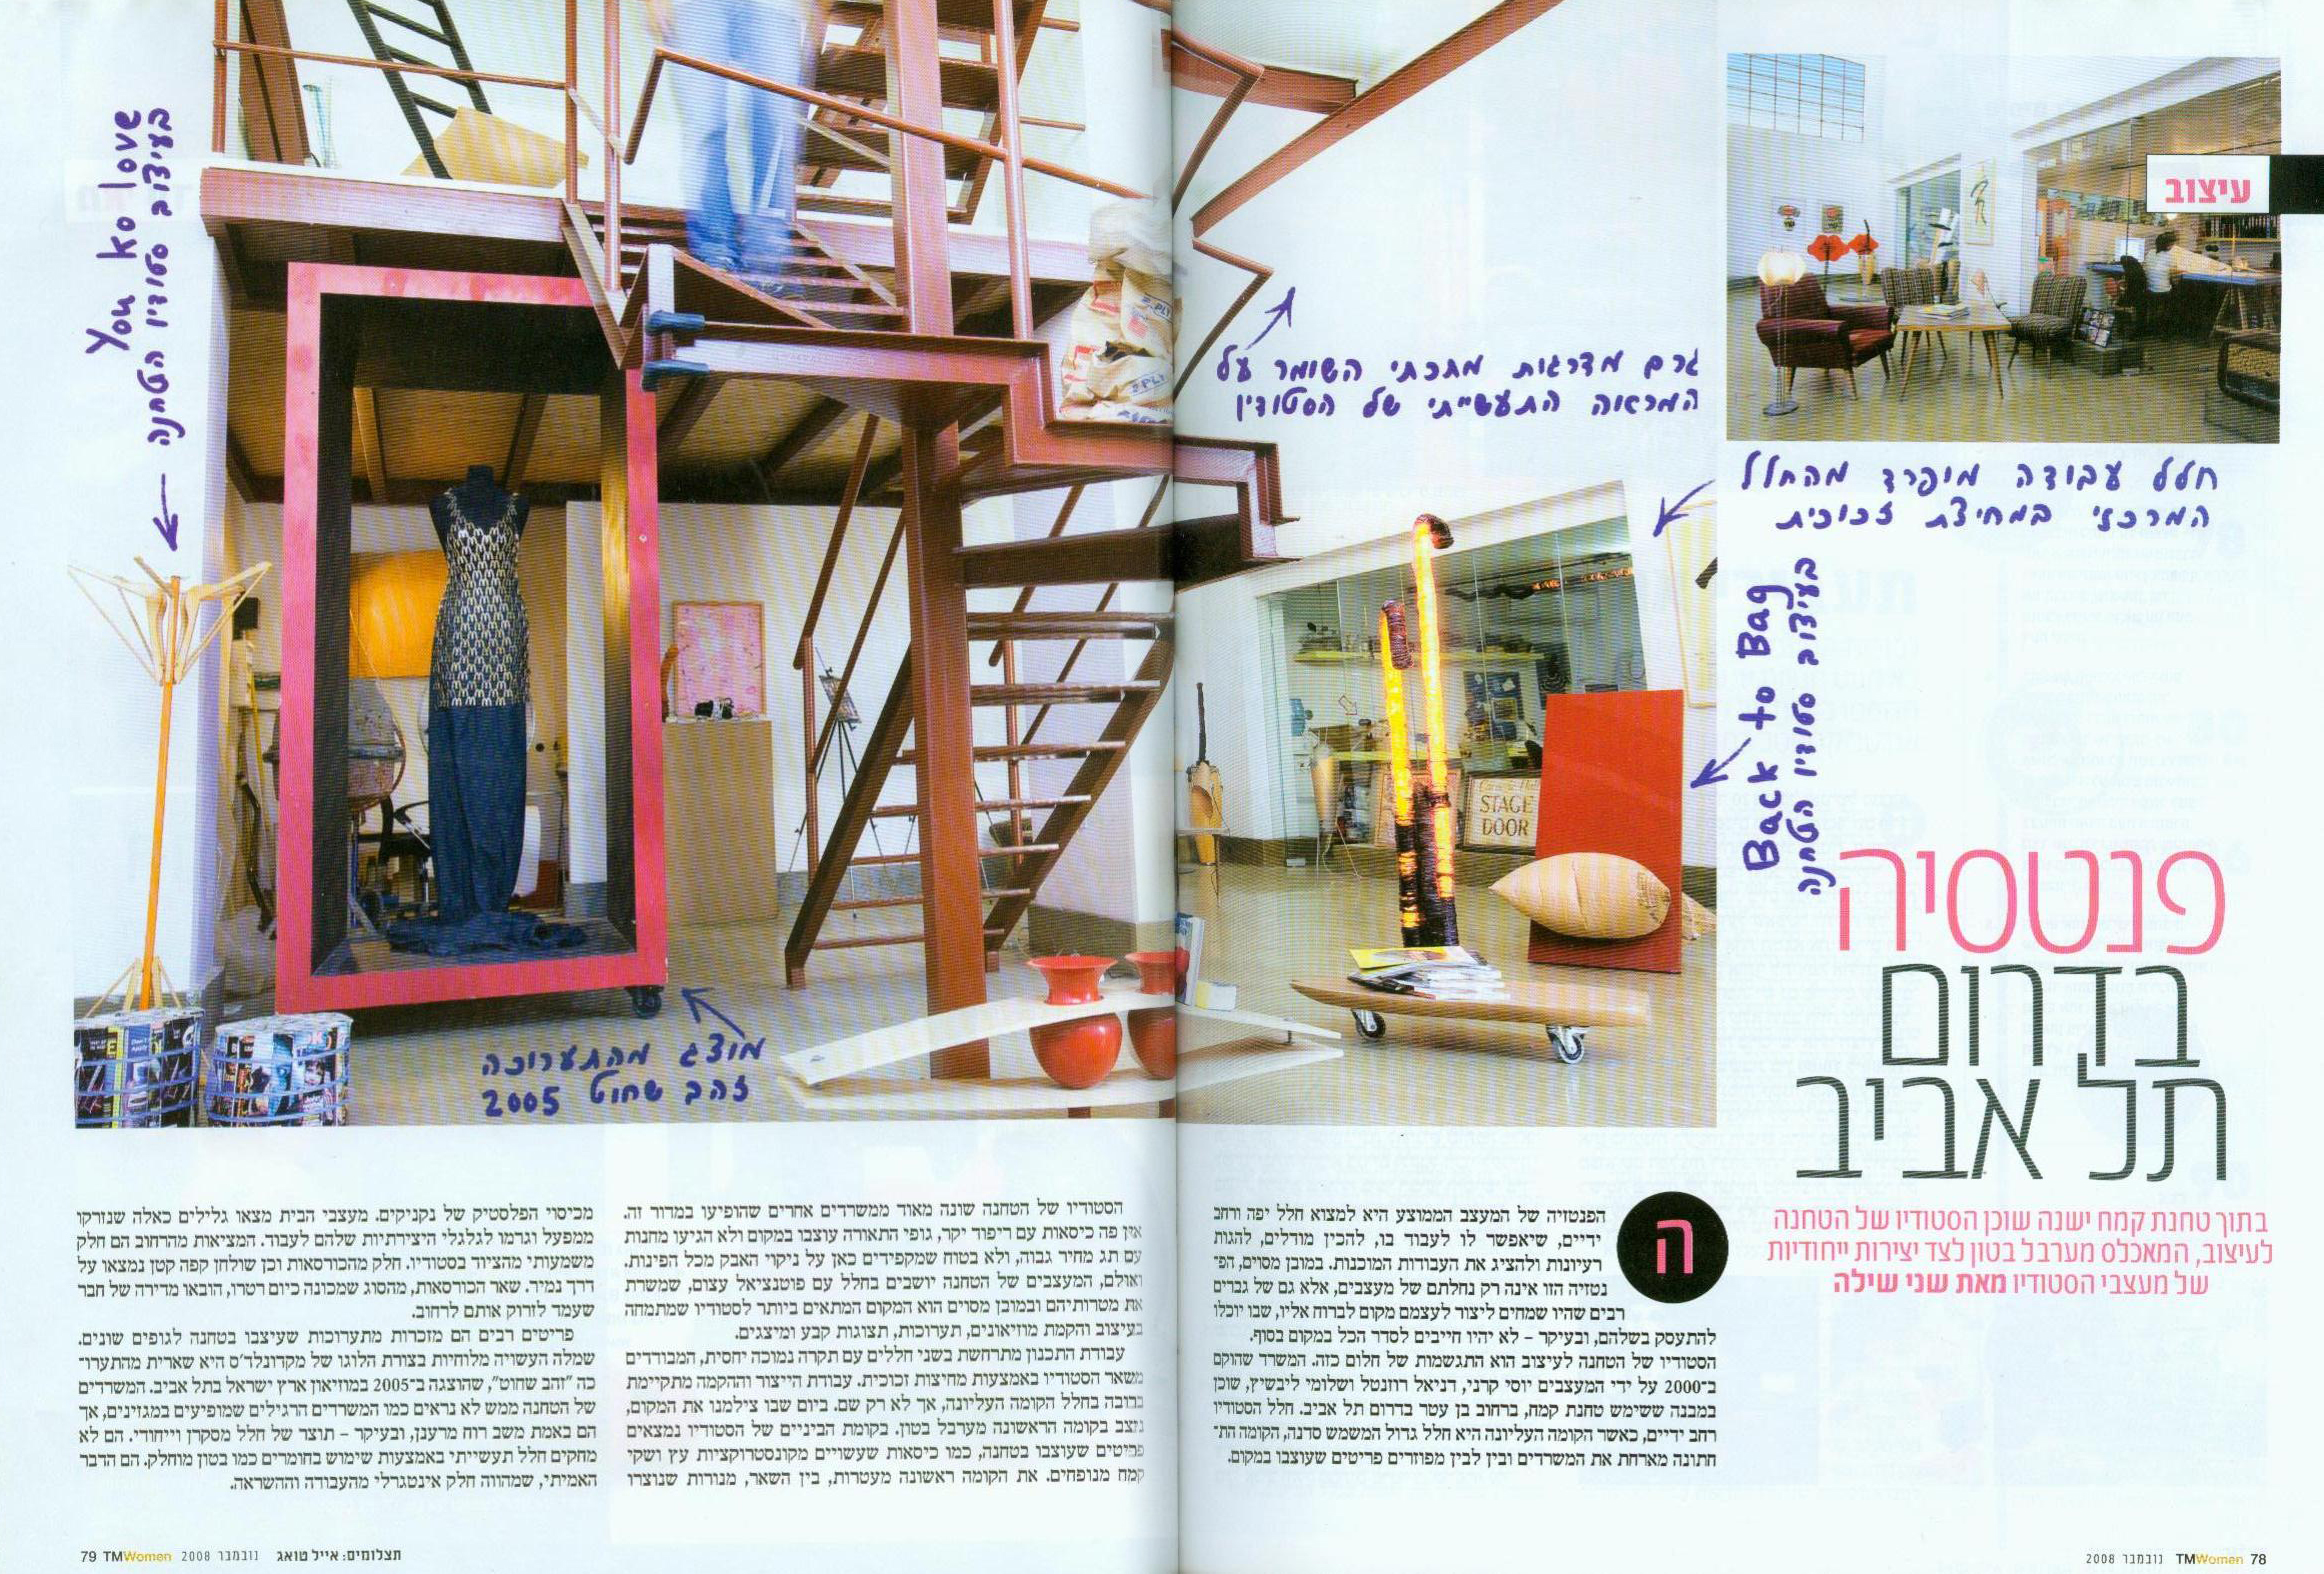 עיצוב
חלל עבודה מופרד מהחלל
המרכזי במחיצת זכוכית
גרם מדרגות מתכתי השומר על
המראה התעשייתי של הסטודיו
Back to Bag
בעיצוב סטודיו הטחנה
You ko love
בעיצוב סטודיו הטחנה
מוצג מהתערוכה
זהב שחוט 2005
STAGE
DOOR
פנטסיה
בדרום
תל אביב
בתוך טחנת קמח ישנה שוכן הסטודיו של הטחנה
לעיצוב, המאכלס מערבל בטון לצד יצירות ייחודיות
של מעצבי הסטודיו מאת שני שילה
ה
הפנטזיה של המעצב הממוצע היא למצוא חלל יפה ורחב
ידיים, שיאפשר לו לעבוד בו, להכין מודלים, להגות
רעיונות ולהציג את העבודות המוכנות. במובן מסוים, הפ־
נטזיה הזו אינה רק נחלתם של מעצבים, אלא גם של גברים
רבים שהיו שמחים ליצור לעצמם מקום לברוח אליו, שבו יוכלו
להתעסק בשלהם, ובעיקר – לא יהיו חייבים לסדר הכל במקום בסוף.
הסטודיו של הטחנה לעיצוב הוא התגשמות של חלום כזה. המשרד שהוקם
ב־2000 על ידי המעצבים יוסי קרני, דניאל רוזנטל ושלומי ליבשיץ, שוכן
במבנה ששימש טחנת קמח, ברחוב בן עטר בדרום תל אביב. חלל הסטודיו
רחב ידיים, כאשר הקומה העליונה היא חלל גדול המשמש סדנה, הקומה הת־
חתונה מארחת את המשרדים ובין לבין מפוזרים פריטים שעוצבו במקום.
הסטודיו של הטחנה שונה מאוד ממשרדים אחרים שהופיעו במדור זה.
אין פה כיסאות עם ריפוד יקר, גופי התאורה עוצבו במקום ולא הגיעו מחנות
עם תג מחיר גבוה, ולא בטוח שמקפידים כאן על ניקוי האבק מכל הפינות.
ואולם, המעצבים של הטחנה יושבים בחלל עם פוטנציאל עצום, שמשרת
את מטרותיהם ובמובן מסוים הוא המקום המתאים ביותר לסטודיו שמתמחה
בעיצוב והקמת מוזיאונים, תערוכות, תצוגות קבע ומיצגים.
עבודת התכנון מתרחשת בשני חללים עם תקרה נמוכה יחסית, המבודדים
משאר הסטודיו באמצעות מחיצות זכוכית. עבודת הייצור וההקמה מתקיימת
ברובה בחלל הקומה העליונה, אך לא רק שם. ביום שבו צילמנו את המקום,
ניצב בקומה הראשונה מערבל בטון. בקומת הביניים של הסטודיו נמצאים
פריטים שעוצבו בטחנה, כמו כיסאות שעשויים מקונסטרוקציות עץ ושקי
קמח מנופחים. את הקומה ראשונה מעטרות, בין השאר, מנורות שנוצרו
מכיסוי הפלסטיק של נקניקים. מעצבי הבית מצאו גלילים כאלה שנזרקו
ממפעל וגרמו לגלגלי היצירתיות שלהם לעבוד. המציאות מהרחוב הם חלק
משמעותי מהציוד בסטודיו. חלק מהכורסאות וכן שולחן קפה קטן נמצאו על
דרך נמיר. שאר הכורסאות, מהסוג שמכונה כיום רטרו, הובאו מדירה של חבר
שעמד לזרוק אותם לרחוב.
פריטים רבים הם מזכרות מתערוכות שעיצבו בטחנה לגופים שונים.
שמלה העשויה מלוחיות בצורת הלוגו של מקדונלד'ס היא שארית מהתערו־
כה "זהב שחוט", שהוצגה ב־2005 במוזיאון ארץ ישראל בתל אביב. המשרדים
של הטחנה ממש לא נראים כמו המשרדים הרגילים שמופיעים במגזינים, אך
הם באמת משב רוח מרענן, ובעיקר – תוצר של חלל מסקרן וייחודי. הם לא
מחקים חלל תעשייתי באמצעות שימוש בחומרים כמו בטון מוחלק. הם הדבר
האמיתי, שמהווה חלק אינטגרלי מהעבודה וההשראה.
78 TMWomen נובמבר 2008
תצלומים: אייל טואג נובמבר 2008 TMWomen 79